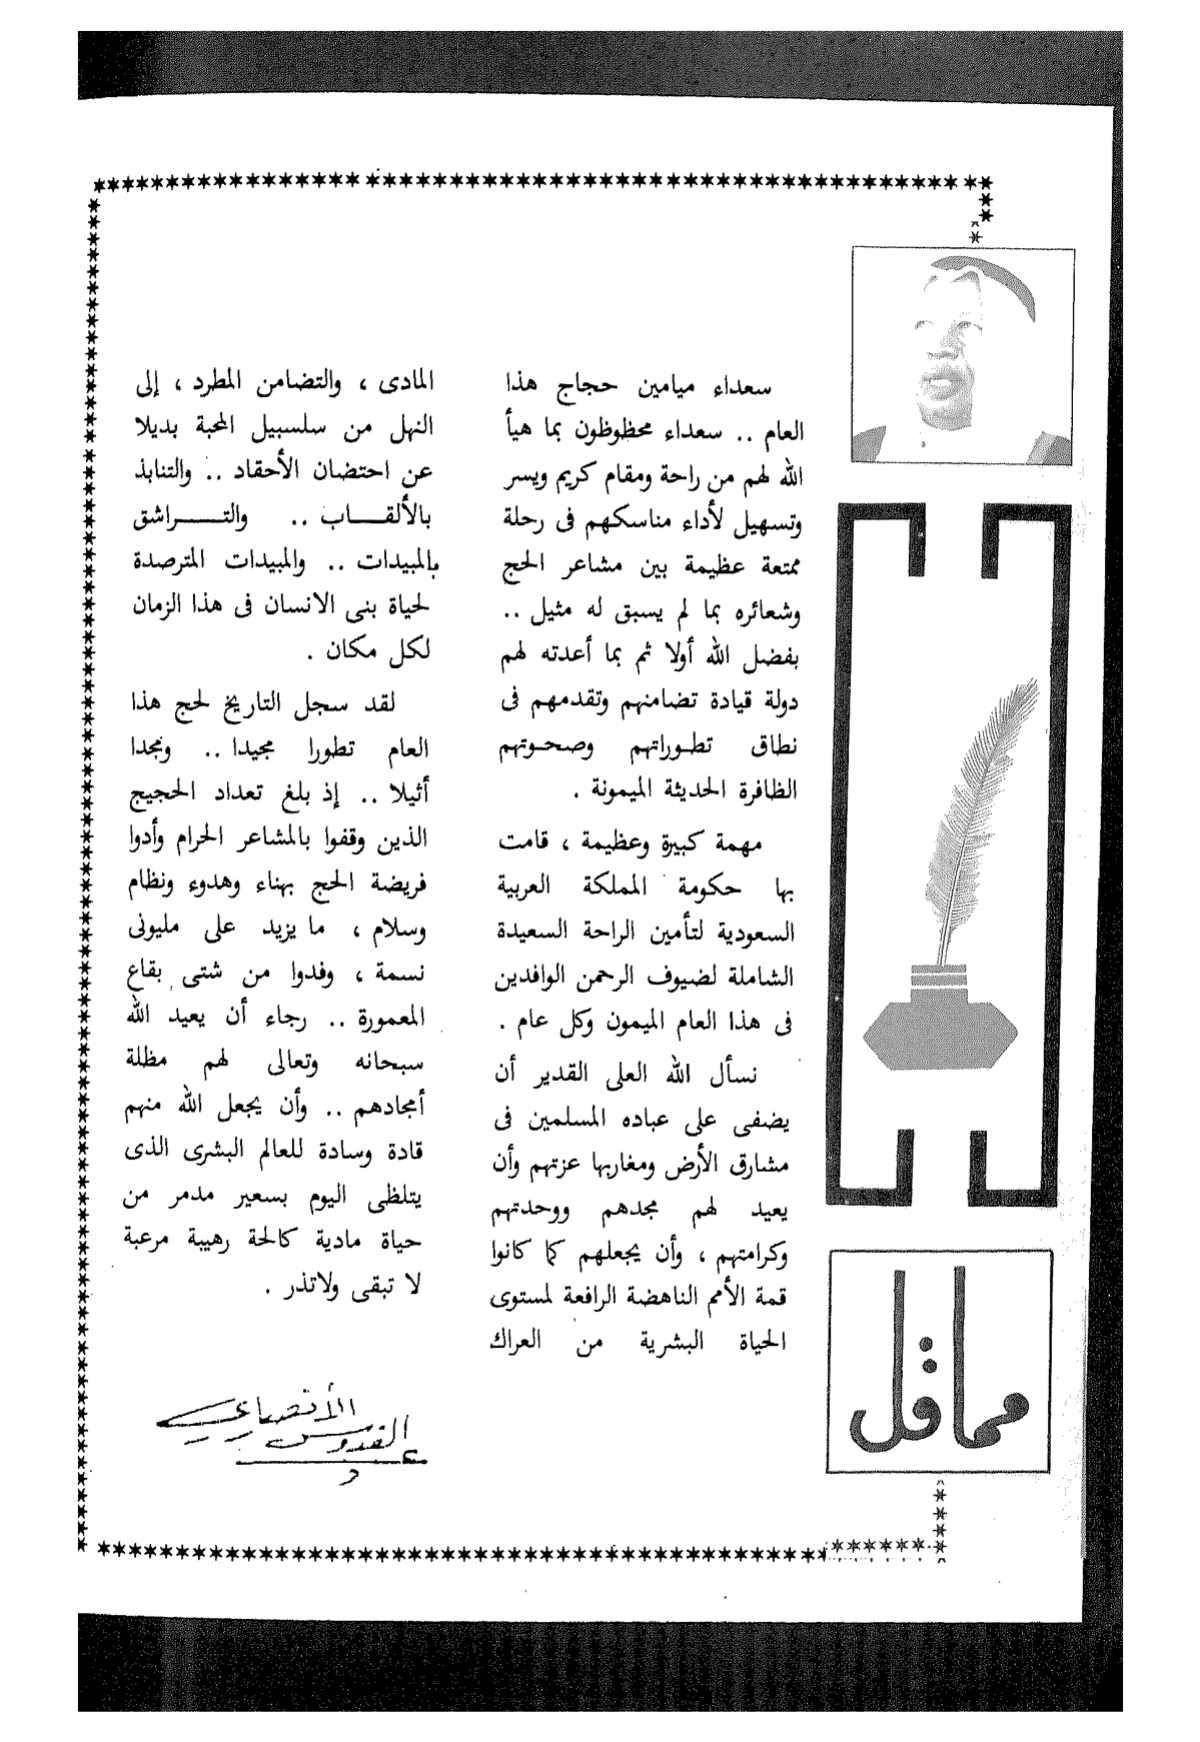 سعداء ميامين حجاج هذا
العام .. سعداء محظوظون بما هيأ
الله لهم من راحة ومقام كريم ويسر
وتسهيل لأداء مناسكهم فى رحلة
ممتعة عظيمة بين مشاعر الحج
وشعائره بما لم يسبق له مثيل ..
بفضل الله أولا ثم بما أعدته لهم
دولة قيادة تضامنهم وتقدمهم فى
نطاق تطوراتهم وصحوتهم
الظافرة الحديثة الميمونة .
مهمة كبيرة وعظيمة ، قامت
بها حكومة المملكة العربية
السعودية لتأمين الراحة السعيدة
الشاملة لضيوف الرحمن الوافدين
فى هذا العام الميمون وكل عام .
نسأل الله العلى القدير أن
يضفى على عباده المسلمين فى
مشارق الأرض ومغاربها عزتهم وأن
يعيد لهم مجدهم ووحدتهم
وكرامتهم ، وأن يجعلهم كما كانوا
قمة الأمم الناهضة الرافعة لمستوى
الحياة البشرية من العراك
المادى ، والتضامن المطرد ، إلى
النهل من سلسبيل المحبة بديلا
عن احتضان الأحقاد .. والتنابذ
بالألقــاب .. والتــراشق
بالمبيدات .. والمبيدات المترصدة
لحياة بنى الانسان فى هذا الزمان
لكل مكان .
لقد سجل التاريخ لحج هذا
العام تطورا مجيدا .. ومجدا
أثيلا .. إذ بلغ تعداد الحجيج
الذين وقفوا بالمشاعر الحرام وأدوا
فريضة الحج بهناء وهدوء ونظام
وسلام ، ما يزيد على مليونى
نسمة ، وفدوا من شتى بقاع
المعمورة .. رجاء أن يعيد الله
سبحانه وتعالى لهم مظلة
أمجادهم .. وأن يجعل الله منهم
قادة وسادة للعالم البشرى الذى
يتلظى اليوم بسعير مدمر من
حياة مادية كالحة رهيبة مرعبة
لا تبقى ولاتذر .
الأنصاري
القدوس
مما قل